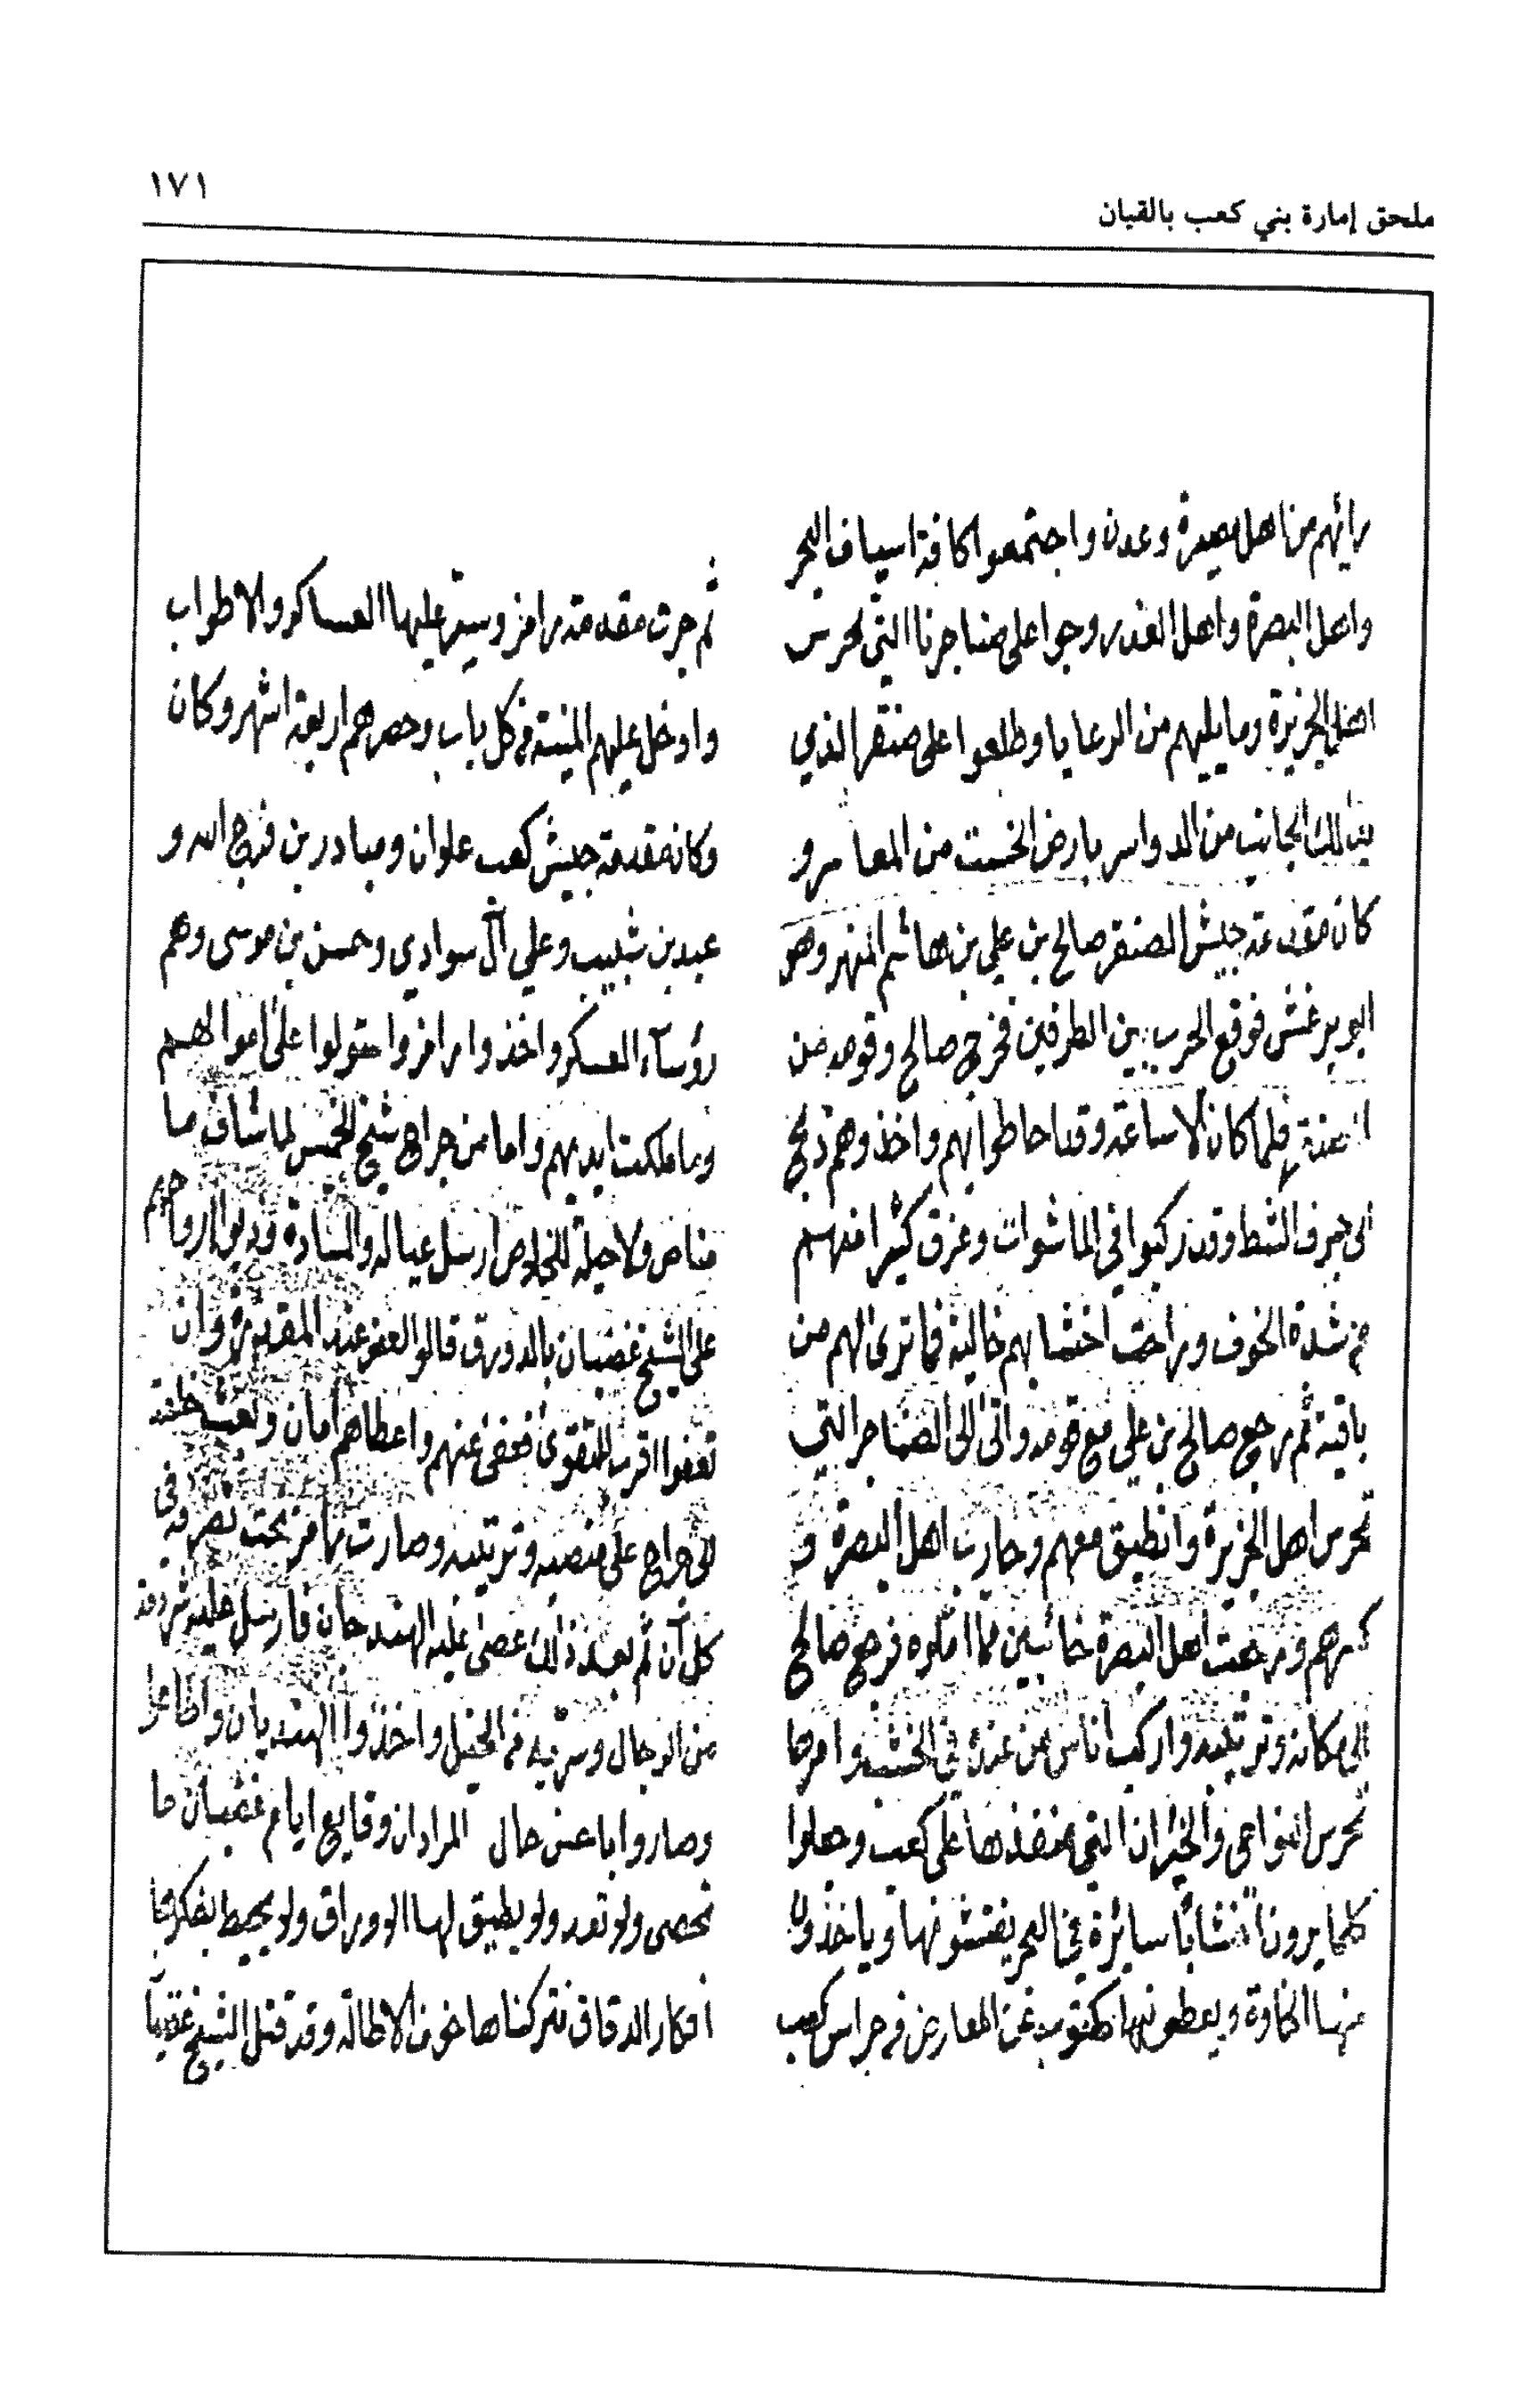 ١٧١
ملحق إمارة بني كعب بالقبان
من اهل وعدن واجتمعوا كافة اسياف البحر
واهل البصرة واهل الغدر وجوا على صناجرنا التي تحرس
اهل الجزيرة وما يليهم من الرعايا وطلعوا على صنقر الذي
الجانب من الدواسر بارض الخست من المعامر و
كان مقدمة جيش الصنقر صالح بن علي بن هاشم المنهر وهو
ابو برغش فوقع الحرب بين الطرفين فخرج صالح وقومه من
فلما كان الا ساعة وقد احاطوا بهم واخذوهم ذبح
الى جرف الشط وقد ركبوا في الماشوات وغرق كثيرا منهم
من شدة الخوف وراحت اخشابهم خالية فما ترى لهم من
باقية ثم رجع صالح بن علي مع قومه واتى الى الصناجر التي
تحرس اهل الجزيرة وانطبق معهم وحارب اهل البصرة و
كسرهم ورجعت اهل البصرة خائبين مما املوه فرجع صالح
الى مكانه وترتيبه واركب اناس من عنده في الخشب وامرها
تحرس النواحي والخيران التي منفذها على كعب وجعلوا
كلما يرون اخشابا سائرة في البحر يفتشونها وياخذون
منها الخاوة ويعطونها مكتوب عن المعارض في حراس كعب
ثم جرت مقدمة رامز وسير عليها العساكر والاطواب
وادخل عليهم في كل باب وحصرهم اربعة اشهر وكان
وكان مقدمة جيش كعب علوان ومبادر بن فرج الله و
عبد بن شبيب وعلي آل سوادي وحسن بن موسى وهم
رؤسآء العسكر واخذوا رامز واحتولوا على اموالهم
وما ملكت ايديهم واما من جراح شيخ الخميس لما شاف ما
مناص ولا حيلة للخلاص ارسل عياله والسادة
على الشيخ غضبان بالدورق قالوا العفو عند المقدرة وان
تعفوا اقرب للتقوى فعفى عنهم واعطاهم امان
جراح على منصبه وترتيبه وصارت رامز تحت تصرفه في
كل آن ثم بعد ذالك عصى عليه الهنديجان فارسل عليه
من الرجال وسرية من الخيل واخذوا الهنديان واطاعوا
وصاروا باعسن حال المراد ان وقايع ايام غضبان ما
تحصى ولو تعد ولو يطيق لها الاوراق ولو يحيط بفكرها
افكار الدقاق فتركناها خوف الاطالة وقد قتل الشيخ